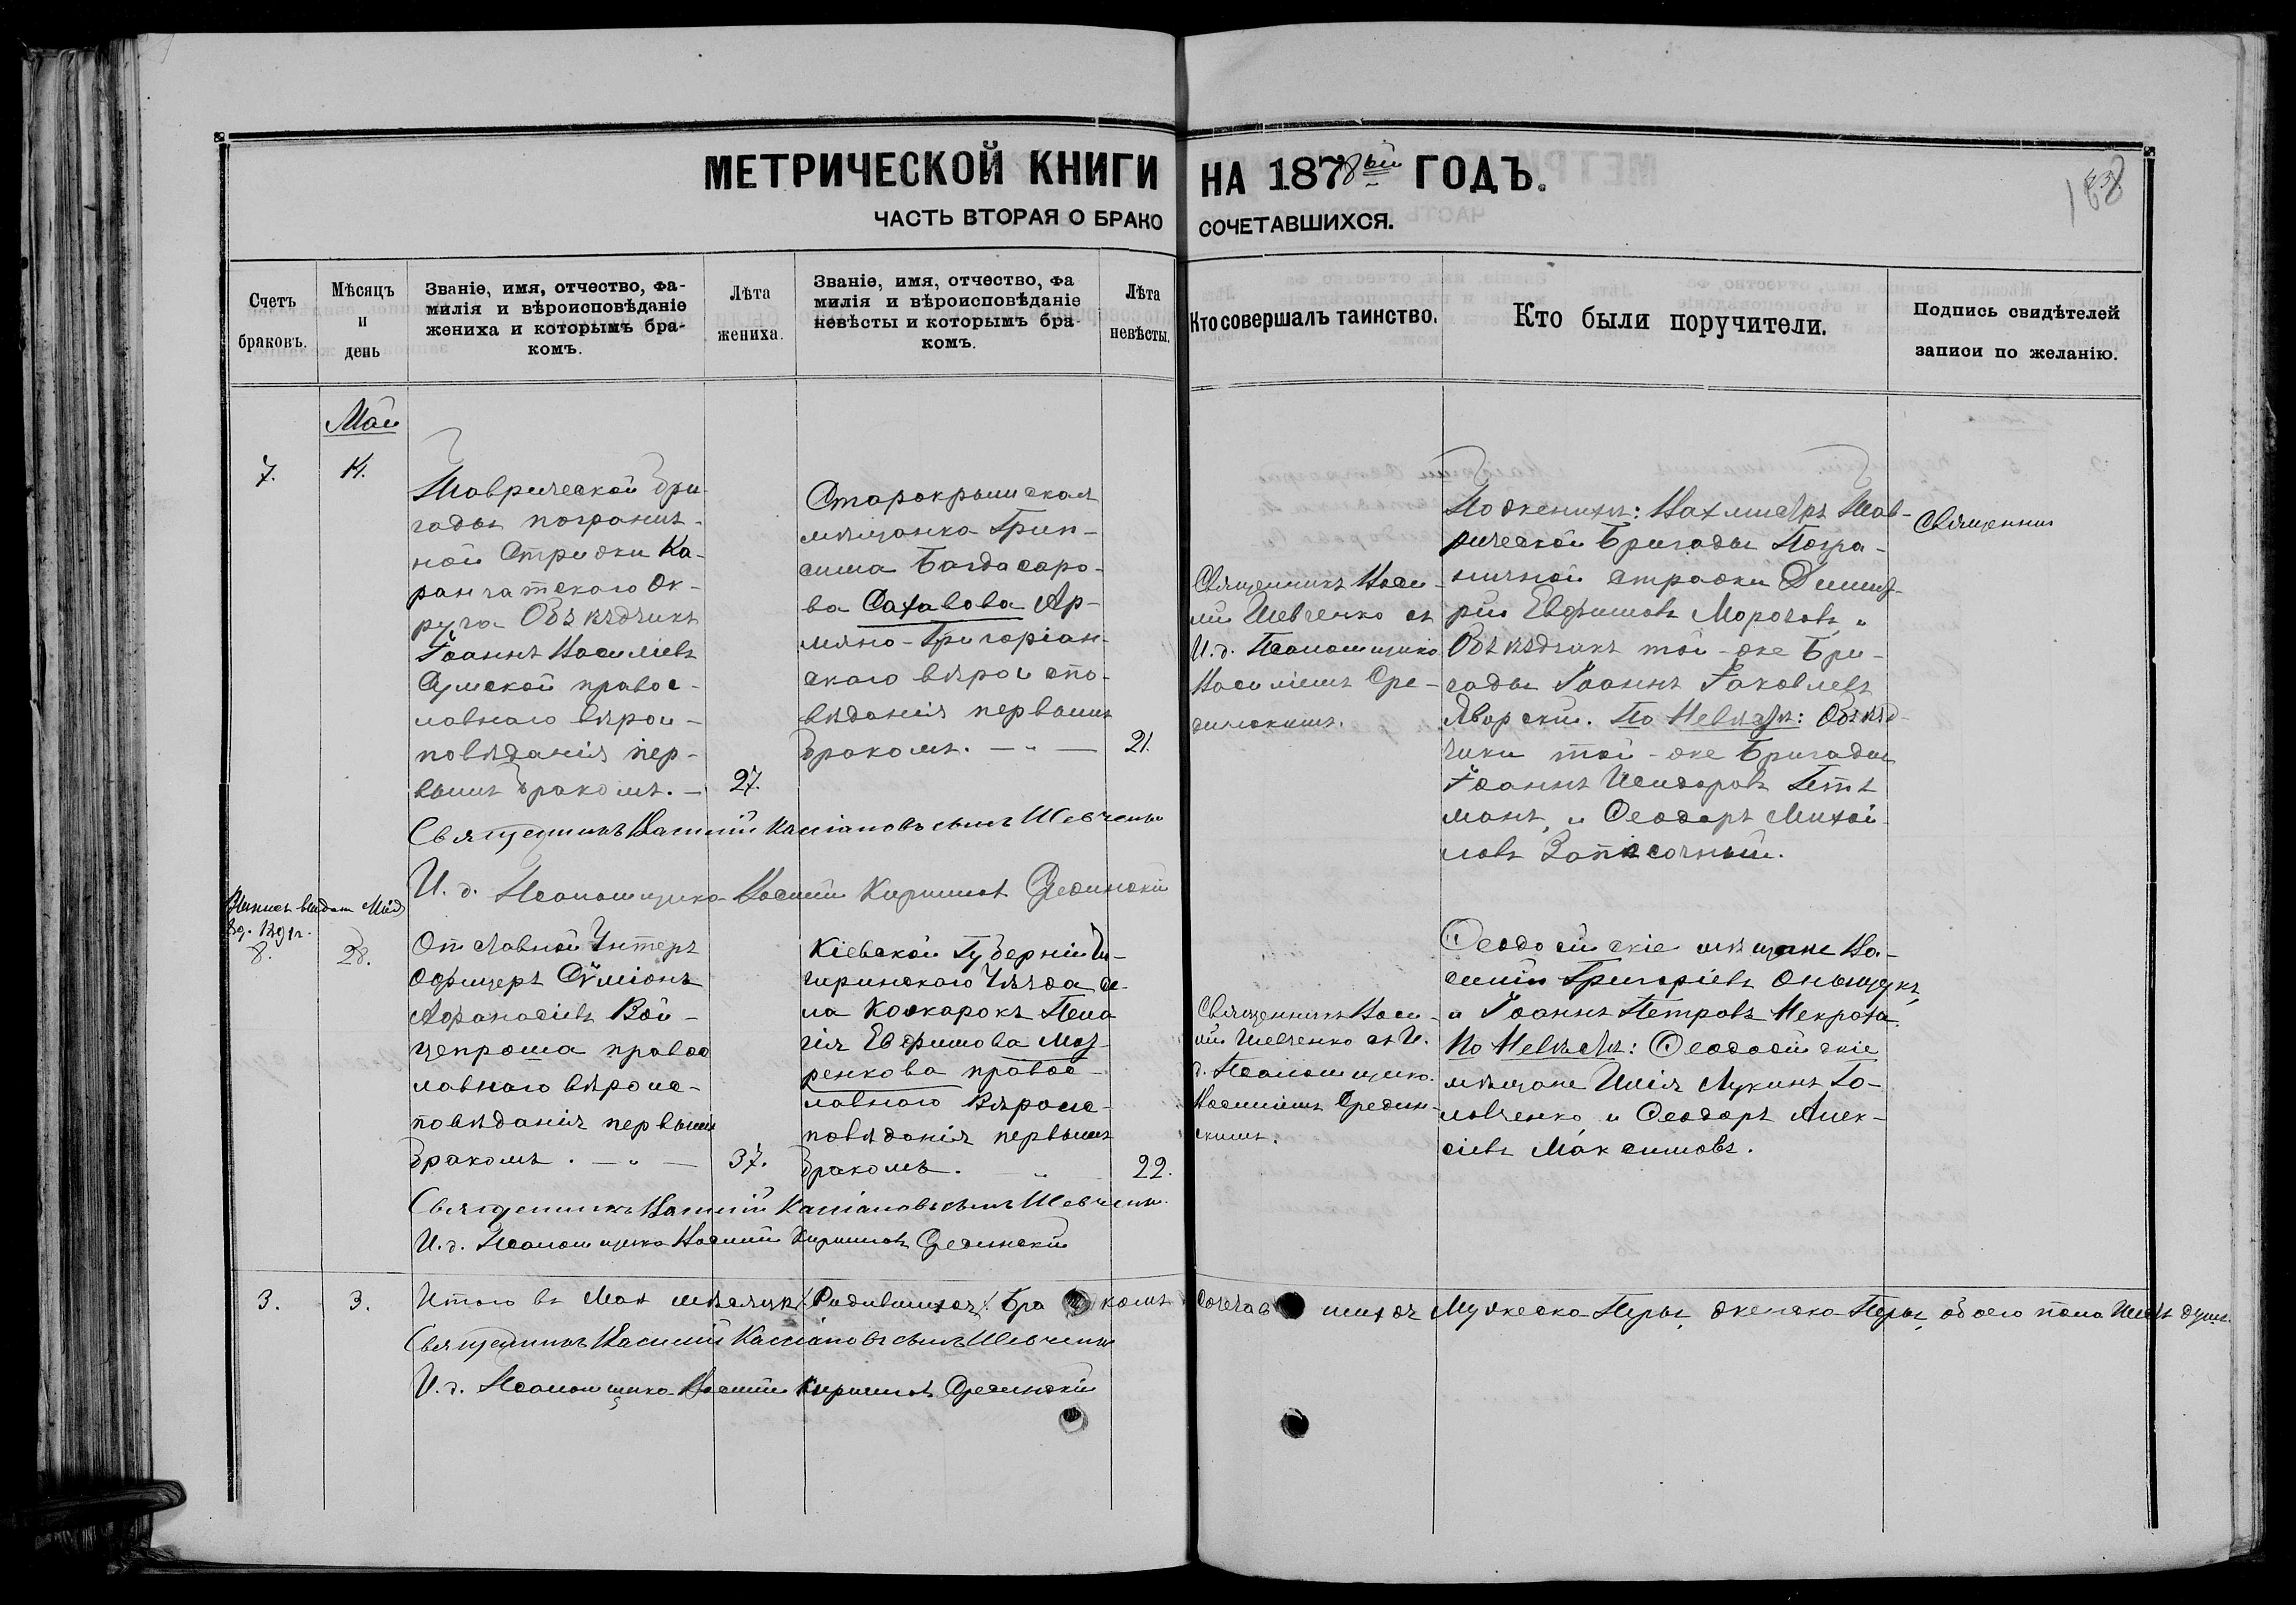 МЕТРИЧЕСКОЙ КНИГИ НА 1878ый ГОДЪ.
ЧАСТЬ ВТОРАЯ О БРАКОСОЧЕТАВШИХСЯ.
Счетъ
браковъ.
Мѣсяцъ
и
день
Званіе, имя, отчество, фа-
милія и вѣроисповѣданіе
жениха и которымъ бра-
комъ.
Лѣта
жениха.
Званіе, имя, отчество, фа
милія и вѣроисповѣданіе
невѣсты и которымъ бра-
комъ.
Лѣта
невѣсты.
Кто совершалъ таинство.
Кто были поручители.
Подпись свидѣтелей
записи по желанію.
Май
7.
14.
Таврической бри-
гады погранич-
ной Стражи Ка-
ранчатскаго Ок-
руга Объѣздчикъ
Іоаннъ Василіевъ
Сумской правос-
лавнаго вѣрои-
повѣданія пер-
вымъ бракомъ. —
27.
Старокрымская
мѣщанка Грип-
сима Багдасаро-
ва Сахавова Ар-
мяно-Григоріан-
скаго вѣроиспо-
вѣданія первымъ
бракомъ. — „ —
21.
Священникъ Васи-
лій Шевченко съ
И.д. Псаломщика
Василіемъ Сре-
динскимъ.
По женихѣ: Вахмистръ Тав-
рической Бригады Погра-
ничной стражи Димит-
рій Евфимовъ Морозовъ, и
Объѣздчикъ той-же Бри-
гады Іоаннъ Іаковлевъ
Яворскій. По Невѣстѣ: Объѣзд-
чики той-же Бригады
Іоаннъ Исидоровъ Гетъ
манъ, и Ѳеодоръ Михаи-
ловъ Запасочный.
Священник
Священникъ Василій Кассіановъ сынъ Шевченко
И. д. Псаломщика Василій Кирилловъ Срединскій
8.
28.
Отставной Унтеръ
офицеръ Симіонъ
Афанасіевъ Вой-
цепроша правос
лавнаго вѣроис-
повѣданія первымъ
бракомъ. — „ —
37.
Кіевской Губерніи Чи-
гиринскаго Уѣзда се-
ла Кожарокъ Пела
гія Евфимова Маз-
ренкова правос-
лавнаго Вѣроис-
повѣданія первымъ
бракомъ. „
22.
Священникъ Васи-
лій Шевченко съ И.
д. Псаломщика.
Василіемъ Средин-
скимъ.
Ѳеодосійскіе мѣщане Ва-
силій Григоріевъ Онищукъ,
и Іоаннъ Петровъ Некраха.
По Невѣстѣ: Ѳеодосійскіе
мѣщане Илія Лукинъ Го-
ловченко, и Ѳеодоръ Алек-
сіевъ Максимовъ.
Священникъ Василій Кассіановъ сынъ Шевченко.
И. д. Псаломщика Василій Кирилловъ Срединскій
3.
3.
Итого въ Маѣ мѣсяцѣ (Родившихся) Бракомъ Сочетавшихся Мужеска Перы, женска Перы, обоего пола Шесть душъ.
Священникъ Василій Кассіановъ сынъ Шевченко
И. д. Псаломщика Василій Кирилловъ Срединскій